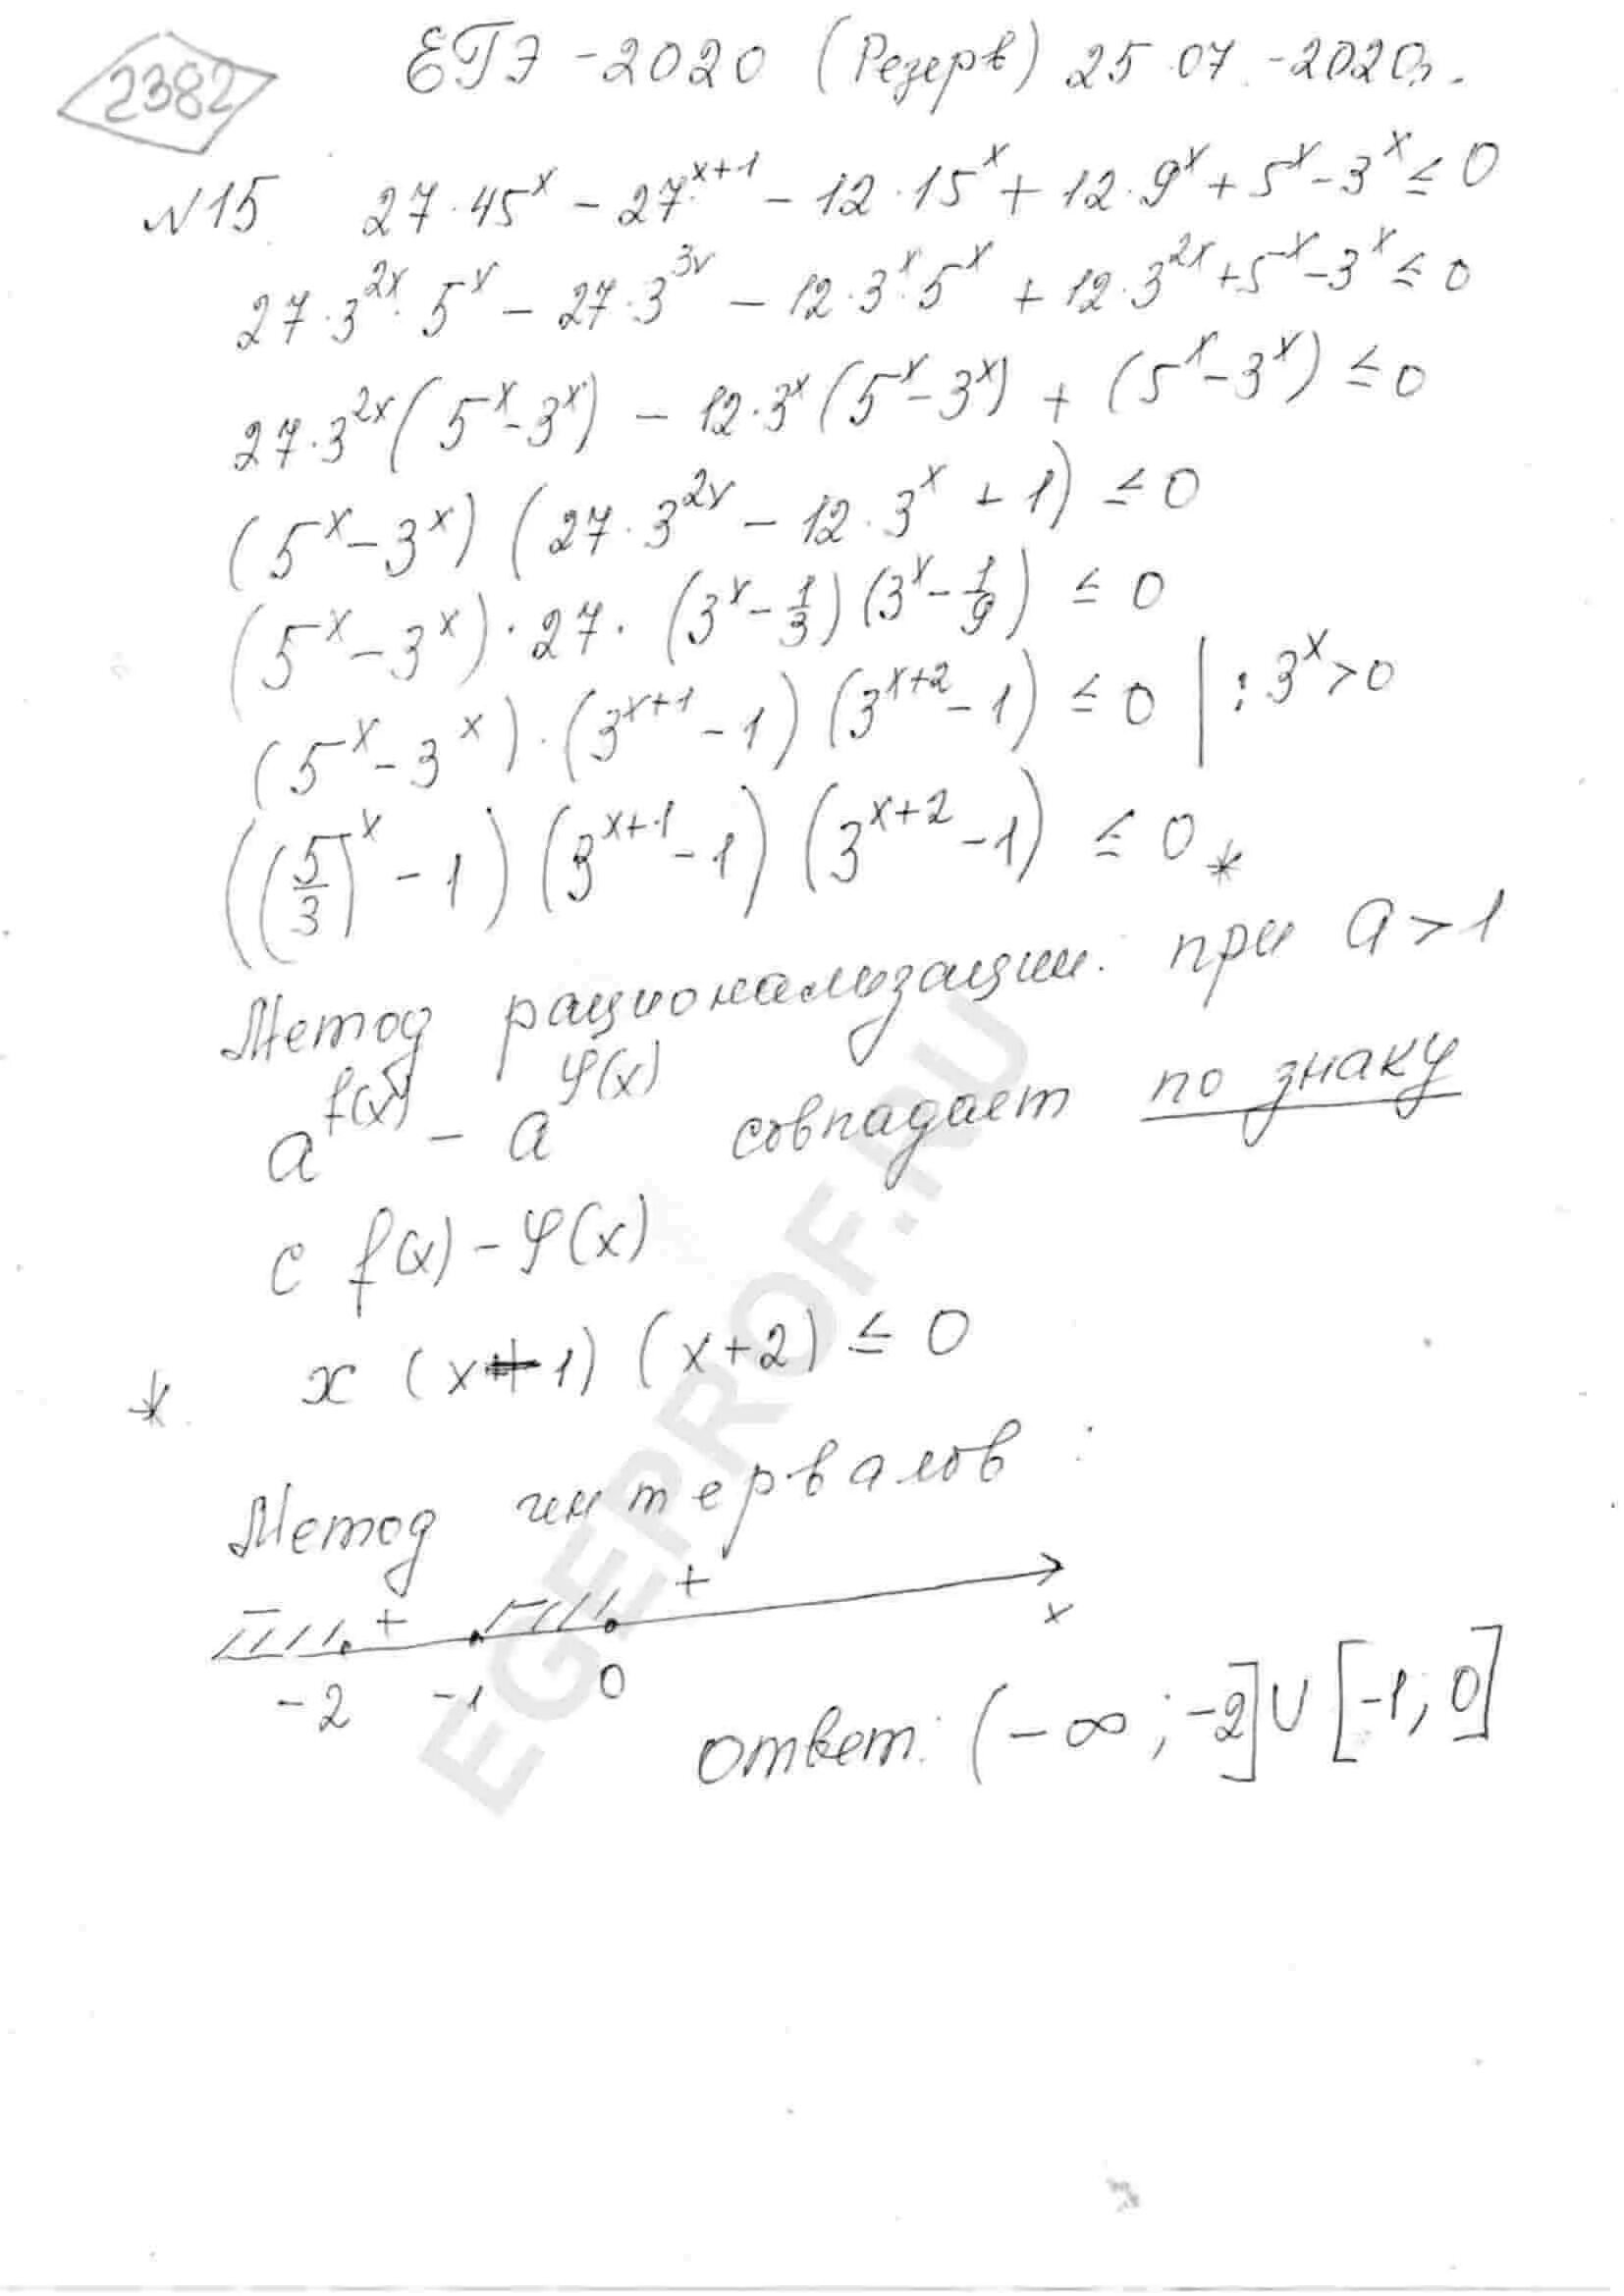 2382
ЕГЭ-2020 (Резерв) 25.07.-2020г.
№15 27·45^x - 27^{x+1} - 12·15^x + 12·9^x + 5^x - 3^x ≤ 0
27·3^{2x}·5^x - 27·3^{3x} - 12·3^x·5^x + 12·3^{2x} + 5^x - 3^x ≤ 0
27·3^{2x}(5^x - 3^x) - 12·3^x(5^x - 3^x) + (5^x - 3^x) ≤ 0
(5^x - 3^x)(27·3^{2x} - 12·3^x + 1) ≤ 0
(5^x - 3^x)·27·(3^x - 1/3)(3^x - 1/9) ≤ 0
(5^x - 3^x)·(3^{x+1} - 1)(3^{x+2} - 1) ≤ 0 | : 3^x > 0
((5/3)^x - 1)(3^{x+1} - 1)(3^{x+2} - 1) ≤ 0 *
Метод рационализации: при a > 1
a^{f(x)} - a^{φ(x)} совпадает по знаку
с f(x) - φ(x)
* x (x+1) (x+2) ≤ 0
Метод интервалов:
- + - + x
-2 -1 0
Ответ: (-∞; -2] ∪ [-1; 0]
EGEPROF.RU